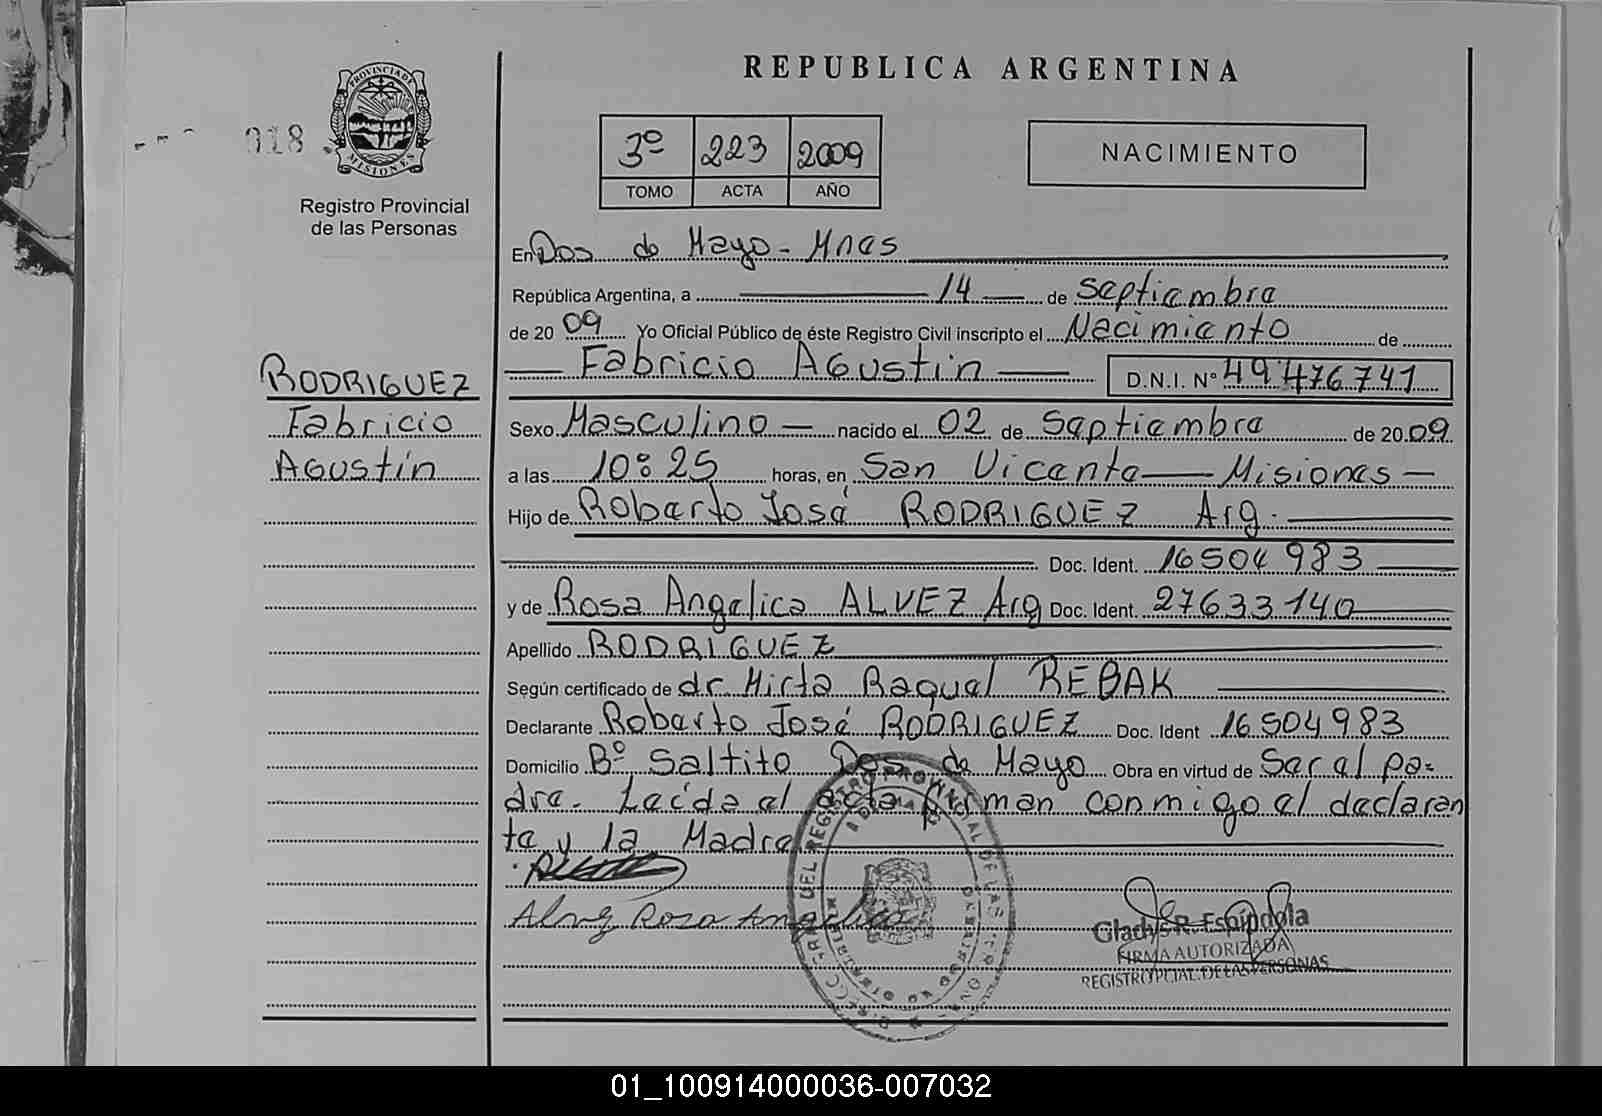 REPUBLICA ARGENTINA
PROVINCIA DE MISIONES
018
Registro Provincial
de las Personas
3º 223 2009
TOMO ACTA AÑO
NACIMIENTO
RODRIGUEZ
Fabricio
Agustín
En Dos de Mayo - Mnes
República Argentina, a 14 de Septiembre
de 20 09 Yo Oficial Público de éste Registro Civil inscripto el Nacimiento de
Fabricio Agustin D.N.I. Nº 49476741
Sexo Masculino nacido el 02 de Septiembre de 20 09
a las 10:25 horas, en San Vicente Misiones
Hijo de Roberto José RODRIGUEZ Arg.
Doc. Ident. 16504983
y de Rosa Angelica ALVEZ Arg Doc. Ident. 27633140
Apellido RODRIGUEZ
Según certificado de dr. Mirta Raquel REBAK
Declarante Roberto José RODRIGUEZ Doc. Ident 16504983
Domicilio Bº Saltito Dos de Mayo Obra en virtud de Ser el pa-
dre. Leída el acta firman conmigo el declaran
te y la Madre
Alvez Rosa Angelica
Gladys R. Espíndola
FIRMA AUTORIZADA
REGISTRO PCIAL. DE LAS PERSONAS
01_100914000036-007032